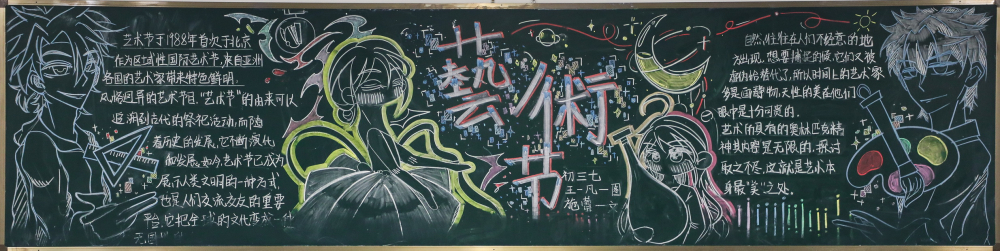 艺术节于1988年首次于北京
作为区域性国际艺术节,来自亚洲
各国的艺术家带来特色鲜明,
风格迥异的艺术节目."艺术节"的由来可以
追溯到古代的祭祀活动,而随
着历史的发展,它不断演化
和发展.如今,艺术节已成为
展示人类文明的一种方式
也是人们交流交友的重要
平台,它把全
的文化
藝術节
初三七
王一凡一圆
自然,往往在人们不经意的地
方出现,想要捕捉的候,它们又被
所以时间上的艺术家
多是画静物,天性的美在他们
眼中是十分可贵的.
艺术的灵魂的奥林匹克精
神其内容是无限的,探讨
取之不尽,这就是艺术本
身最"美"之处.